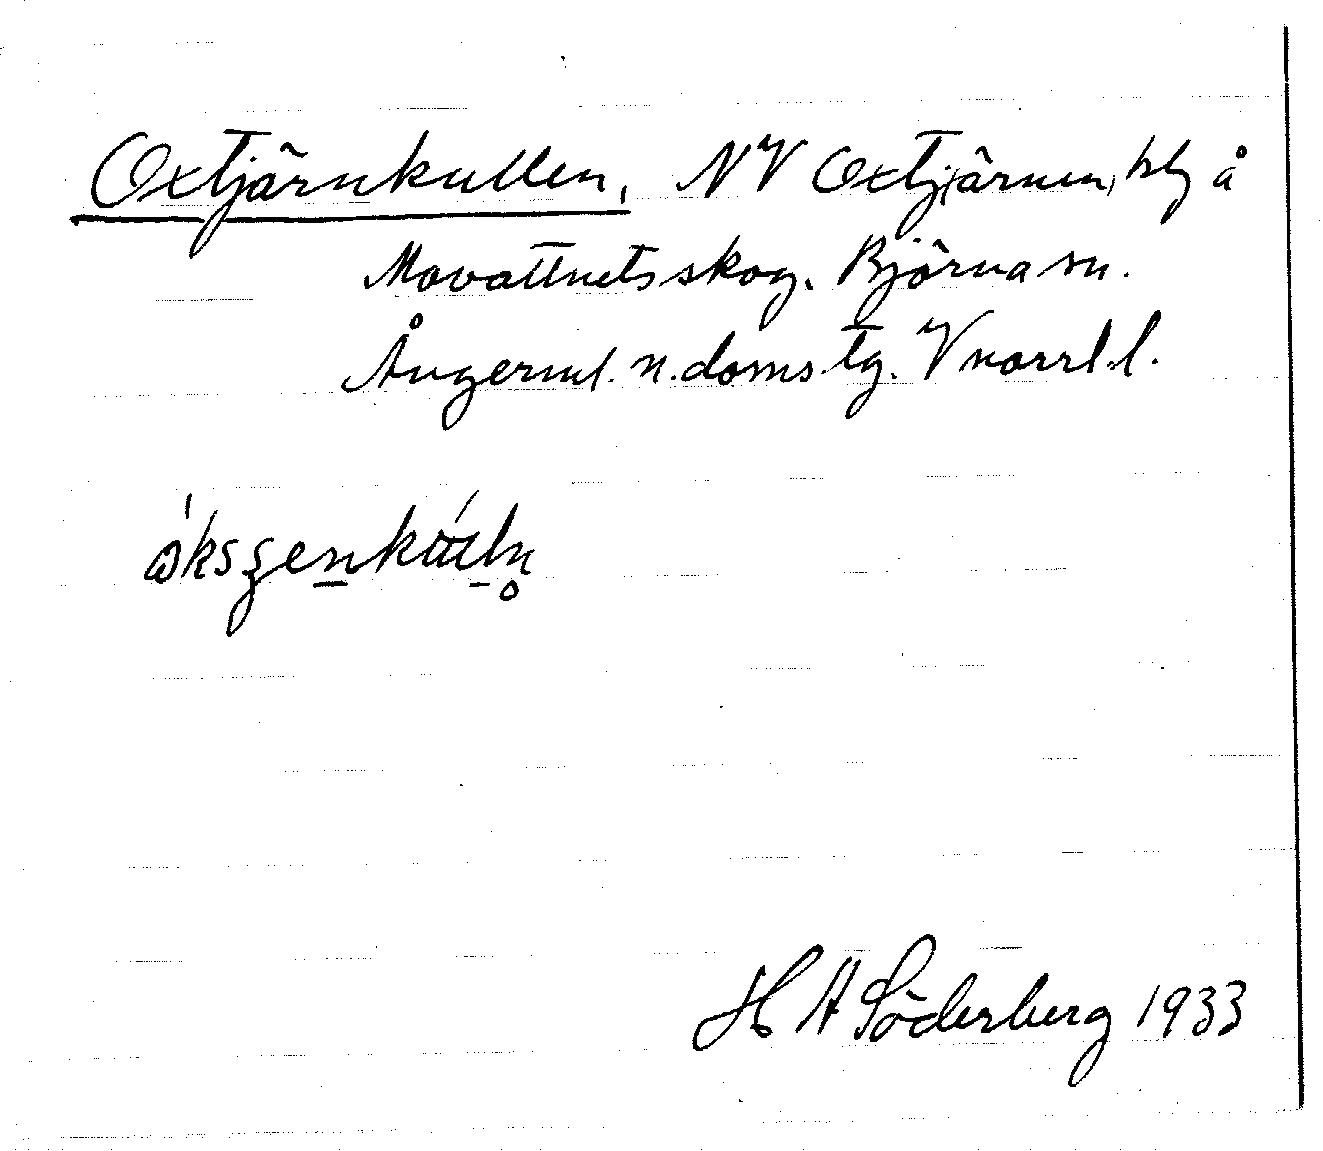 Oxtjärnkullen, NV Oxtjärnen, blg å
Movattnets skog. Björna sn.
Ångerml. n. doms. tg. Vnorrl. l.
H A Söderberg 1933